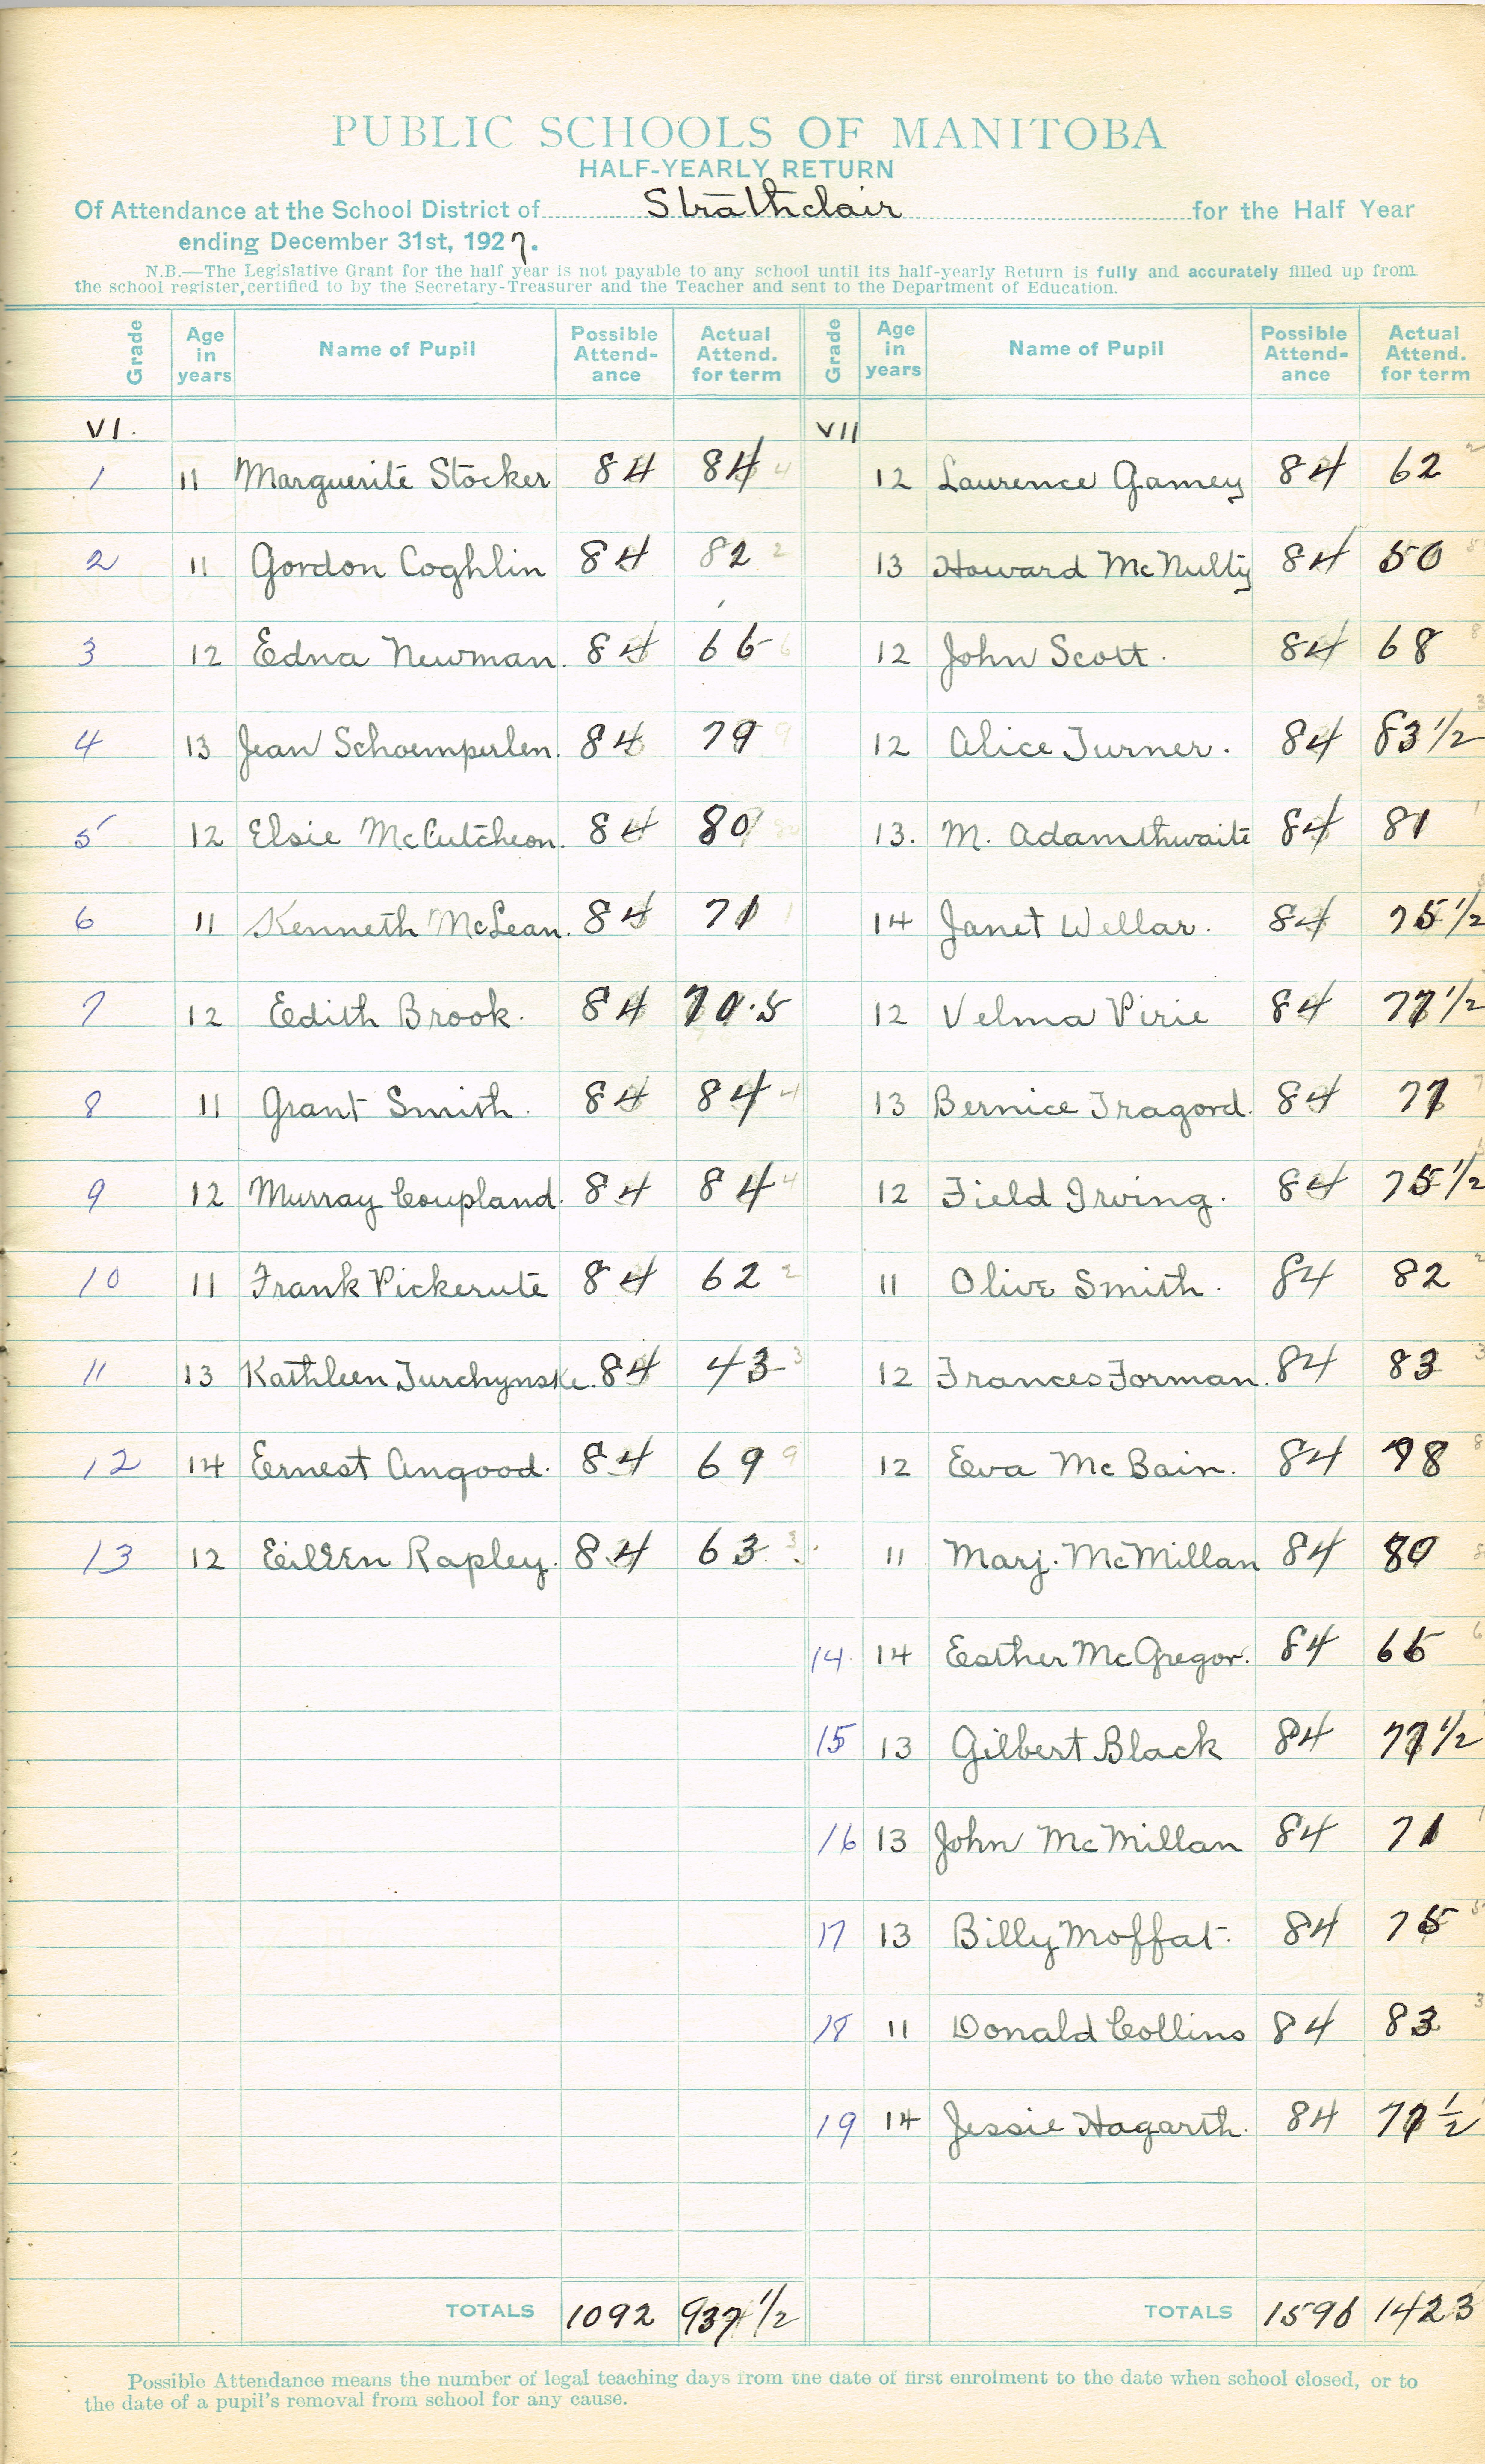 PUBLIC SCHOOLS OF MANITOBA
HALF-YEARLY RETURN
Of Attendance at the School District of Strathclair for the Half Year
ending December 31st, 1927.
N.B.—The Legislative Grant for the half year is not payable to any school until its half-yearly Return is fully and accurately filled up from
the school register, certified to by the Secretary-Treasurer and the Teacher and sent to the Department of Education.
Grade Age in years Name of Pupil Possible Attend-ance Actual Attend. for term Grade Age in years Name of Pupil Possible Attend-ance Actual Attend. for term
VI. VII
1 11 Marguerite Stocker 84 84 12 Laurence Gamey 84 62
2 11 Gordon Coghlin 84 82 13 Howard McNulty 84 50
3 12 Edna Newman. 84 66 12 John Scott. 84 68
4 13 Jean Schoemperlen. 84 79 12 Alice Turner. 84 83 1/2
5 12 Elsie McCutcheon. 84 80 13. M. Adamthwaite 84 81
6 11 Kenneth McLean. 84 71 14 Janet Wellar. 84 75 1/2
7 12 Edith Brook. 84 70.5 12 Velma Pirie 84 77 1/2
8 11 Grant Smith. 84 84 13 Bernice Tragord. 84 77
9 12 Murray Coupland. 84 84 12 Field Irving. 84 75 1/2
10 11 Frank Vickerute 84 62 11 Olive Smith. 84 82
11 13 Kathleen Turchynske. 84 43 12 Frances Forman. 84 83
12 14 Ernest Angood. 84 69 12 Eva McBain. 84 78
13 12 Eileen Rapley. 84 63 11 Marj. McMillan 84 80
14. 14 Esther McGregor. 84 66
15 13 Gilbert Black 84 77 1/2
16 13 John McMillan 84 71
17 13 Billy Moffat. 84 75
18 11 Donald Collins 84 83
19 14 Jessie Hagarth. 84 77 1/2
TOTALS 1092 937 1/2 TOTALS 1596 1423
Possible Attendance means the number of legal teaching days from the date of first enrolment to the date when school closed, or to
the date of a pupil's removal from school for any cause.